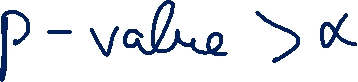 p-value > α